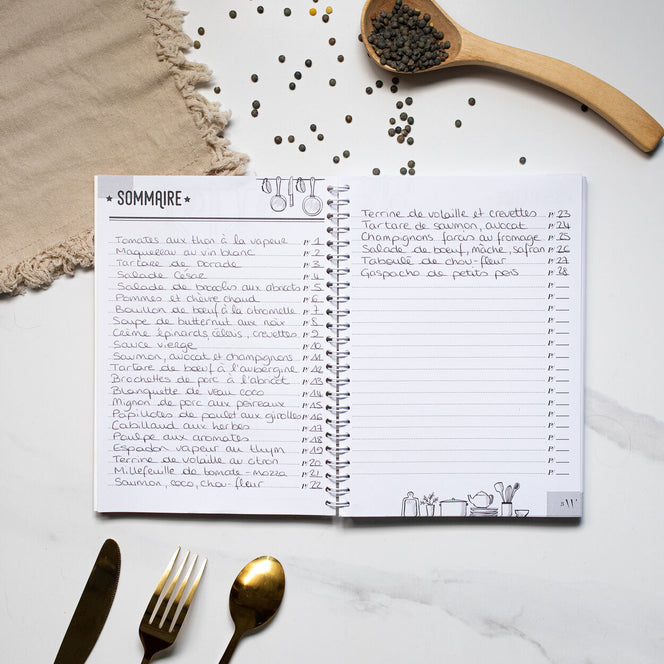 ★ SOMMAIRE ★
Tomates aux thon à la vapeur P. 1
Maquereau au vin blanc P. 2
Tartare de dorade P. 3
Salade César P. 4
Salade de brocolis aux abricots P. 5
Pommes et chèvre chaud P. 6
Bouillon de bœuf à la citronnelle P. 7
Soupe de butternut aux noix P. 8
Crème épinards, céleris, crevettes P. 9
Sauce vierge P. 10
Saumon, avocat et champignons P. 11
Tartare de bœuf à l'aubergine P. 12
Brochettes de porc à l'abricot P. 13
Blanquette de veau coco P. 14
Mignon de porc aux poireaux P. 15
Papillotes de poulet aux girolles P. 16
Cabillaud aux herbes P. 17
Poulpe aux aromates P. 18
Espadon vapeur au thym P. 19
Terrine de volaille au citron P. 20
Millefeuille de tomate-mozza P. 21
Saumon, coco, chou-fleur P. 22
Terrine de volaille et crevettes P. 23
Tartare de saumon, avocat P. 24
Champignons farcis au fromage P. 25
Salade de bœuf, mâche, safran P. 26
Taboulé de chou-fleur P. 27
Gaspacho de petits pois P. 28
P.
P.
P.
P.
P.
P.
P.
P.
P.
P.
P.
P.
P.
P.
P.
P.
P.